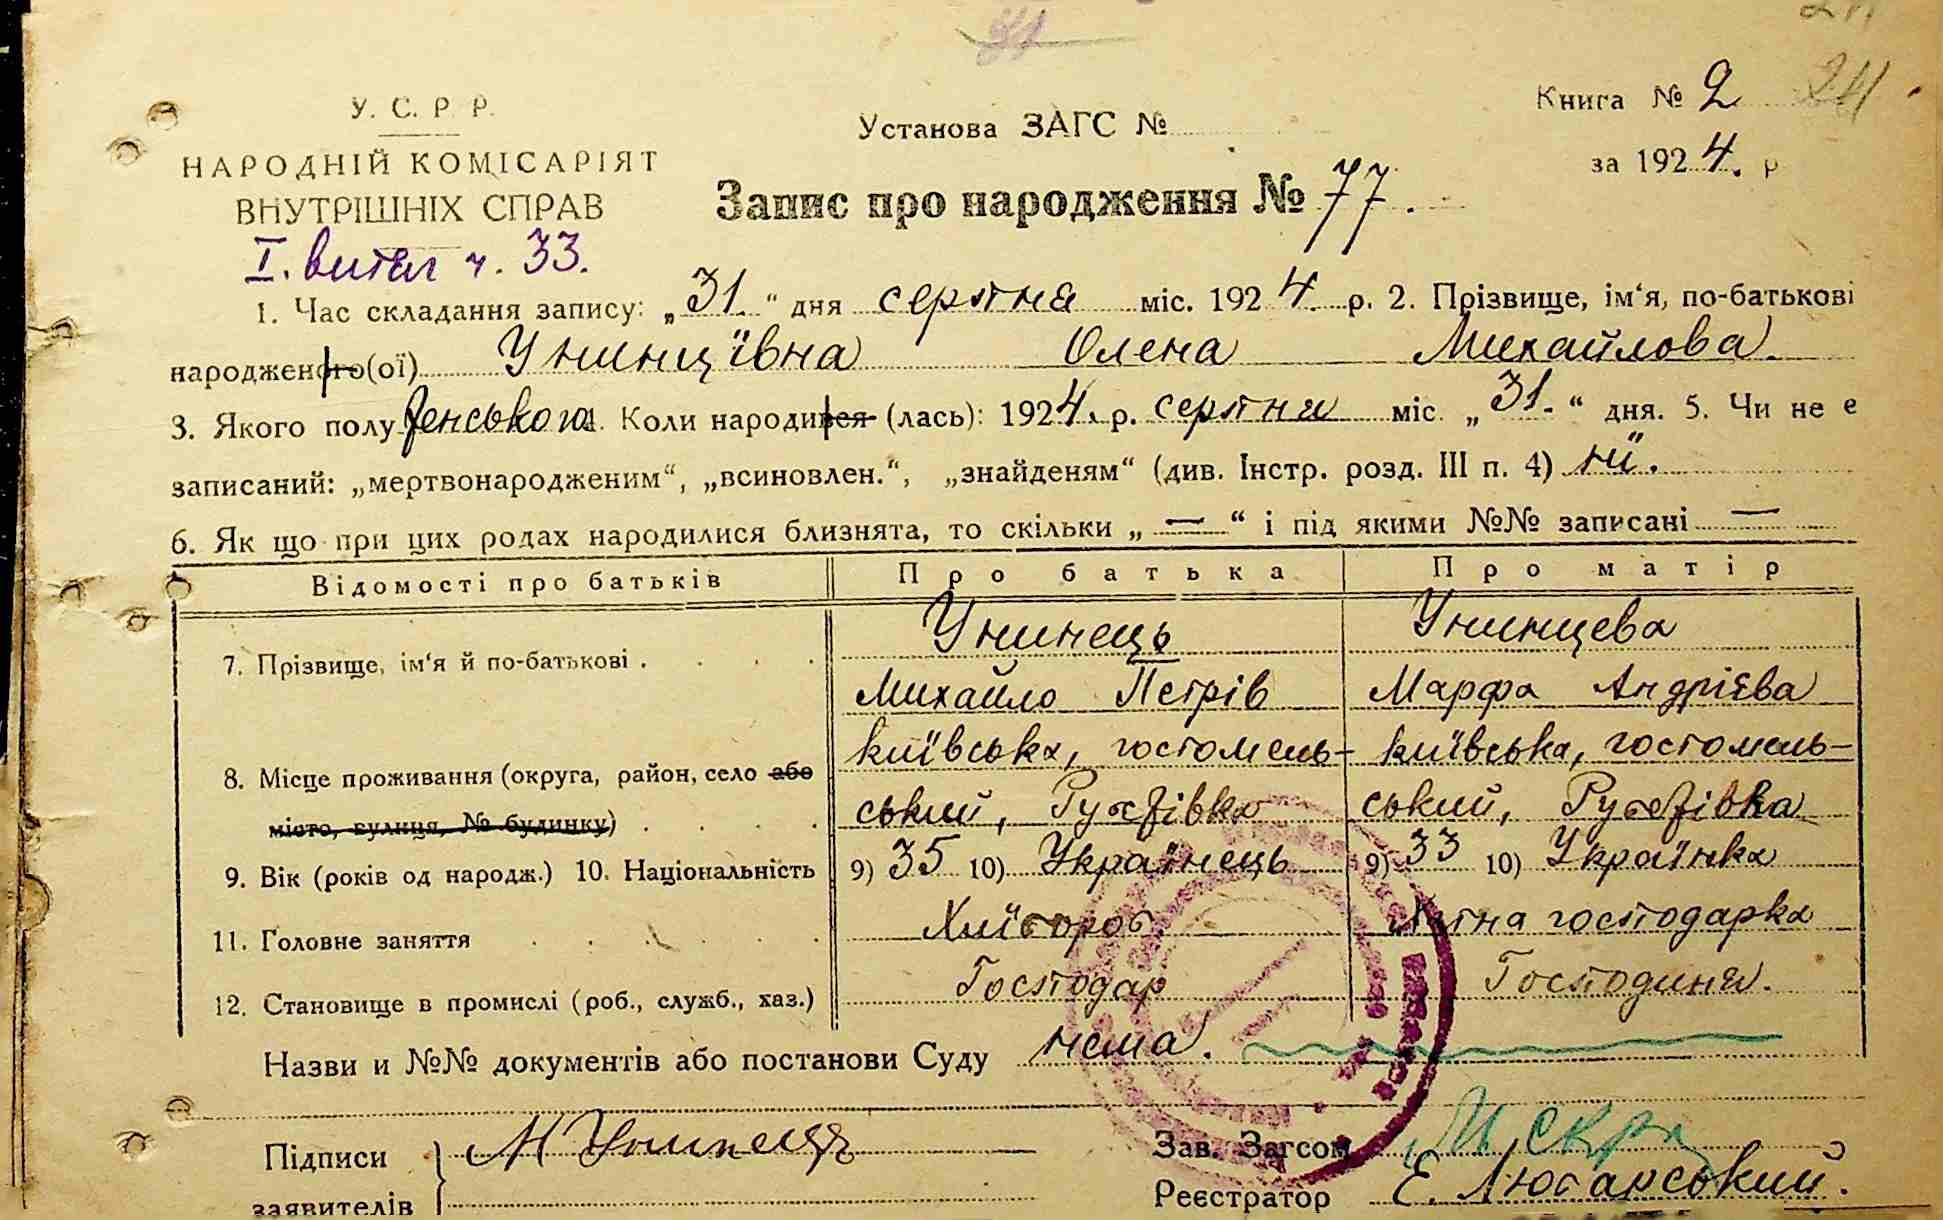 31
24
24
У. С. Р. Р.
Установа ЗАГС №
Книга № 2
НАРОДНІЙ КОМІСАРІЯТ
за 1924. р
ВНУТРІШНІХ СПРАВ
Запис про народження № 77.
І. витяг ч. 33.
1. Час складання запису: „31.“ дня серпня міс. 1924. р. 2. Прізвище, ім‘я, по-батькові
народженого(ої) Унинціївна Олена Михайлова.
3. Якого полу женського 4. Коли народився (лась): 1924. р. серпня міс. „31.“ дня. 5. Чи не є
записаний: „мертвонародженим“, „всиновлен.“, „знайденям“ (див. Інстр. розд. III п. 4) ні.
6. Як що при цих родах народилися близнята, то скільки „—“ і під якими №№ записані —
Відомості про батьків Про батька Про матір
Унинець Унинцева
7. Прізвище, ім‘я й по-батькові .
Михайло Петрів Марфа Андрієва
київська, гостомель- київська, гостомель-
8. Місце проживання (округа, район, село або
ський, Рутжівка ський, Рутжівка
місто, вулиця, № будинку)
9. Вік (років од народж.) 10. Національність 9) 35 10) Українець 9) 33 10) Українка
11. Головне заняття Хлібороб Хатна господарка
12. Становище в промислі (роб., служб., хаз.) Господар Господиня.
Назви и №№ документів або постанови Суду нема.
Підписи М Унинець Зав. Загсом
заявителів Реєстратор Е. Лютарський.